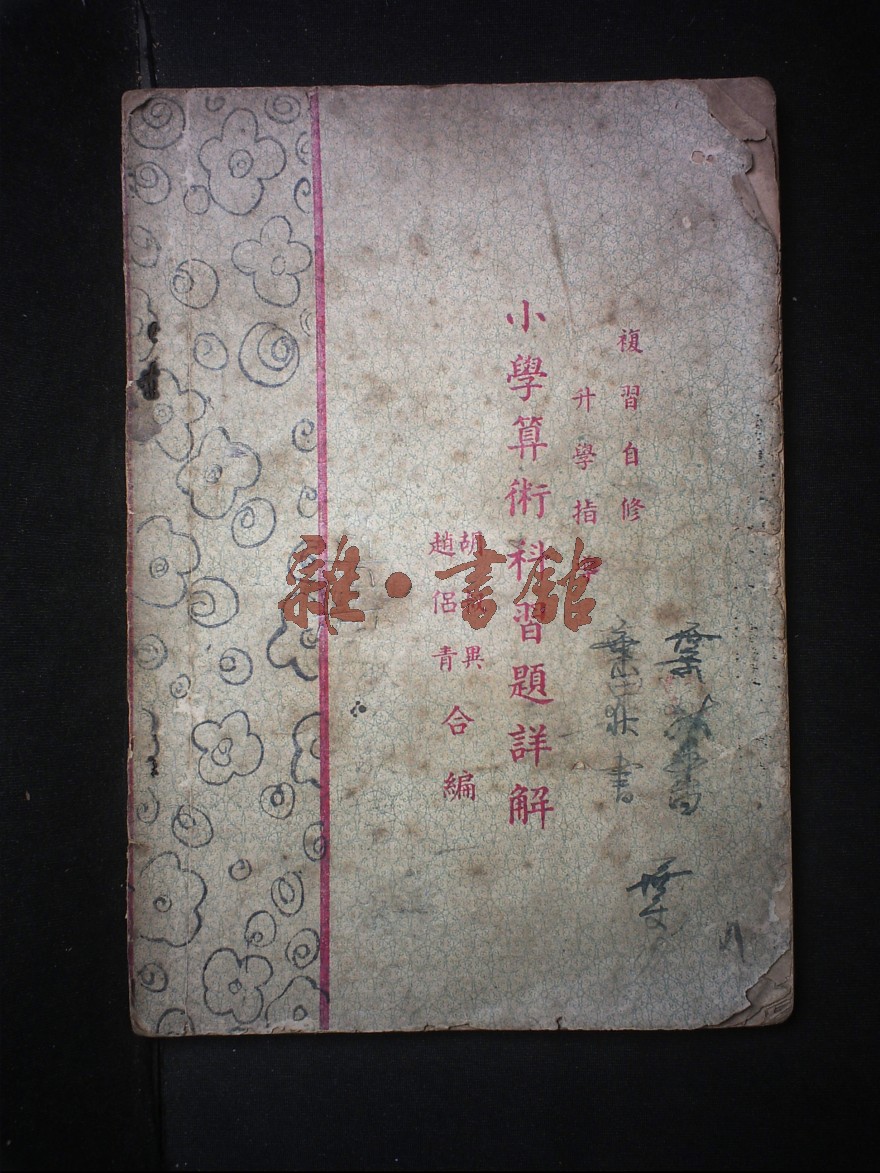 複習自修
升學指導
小學算術科習題詳解
胡 異
趙侶青
合編
雜·書舘